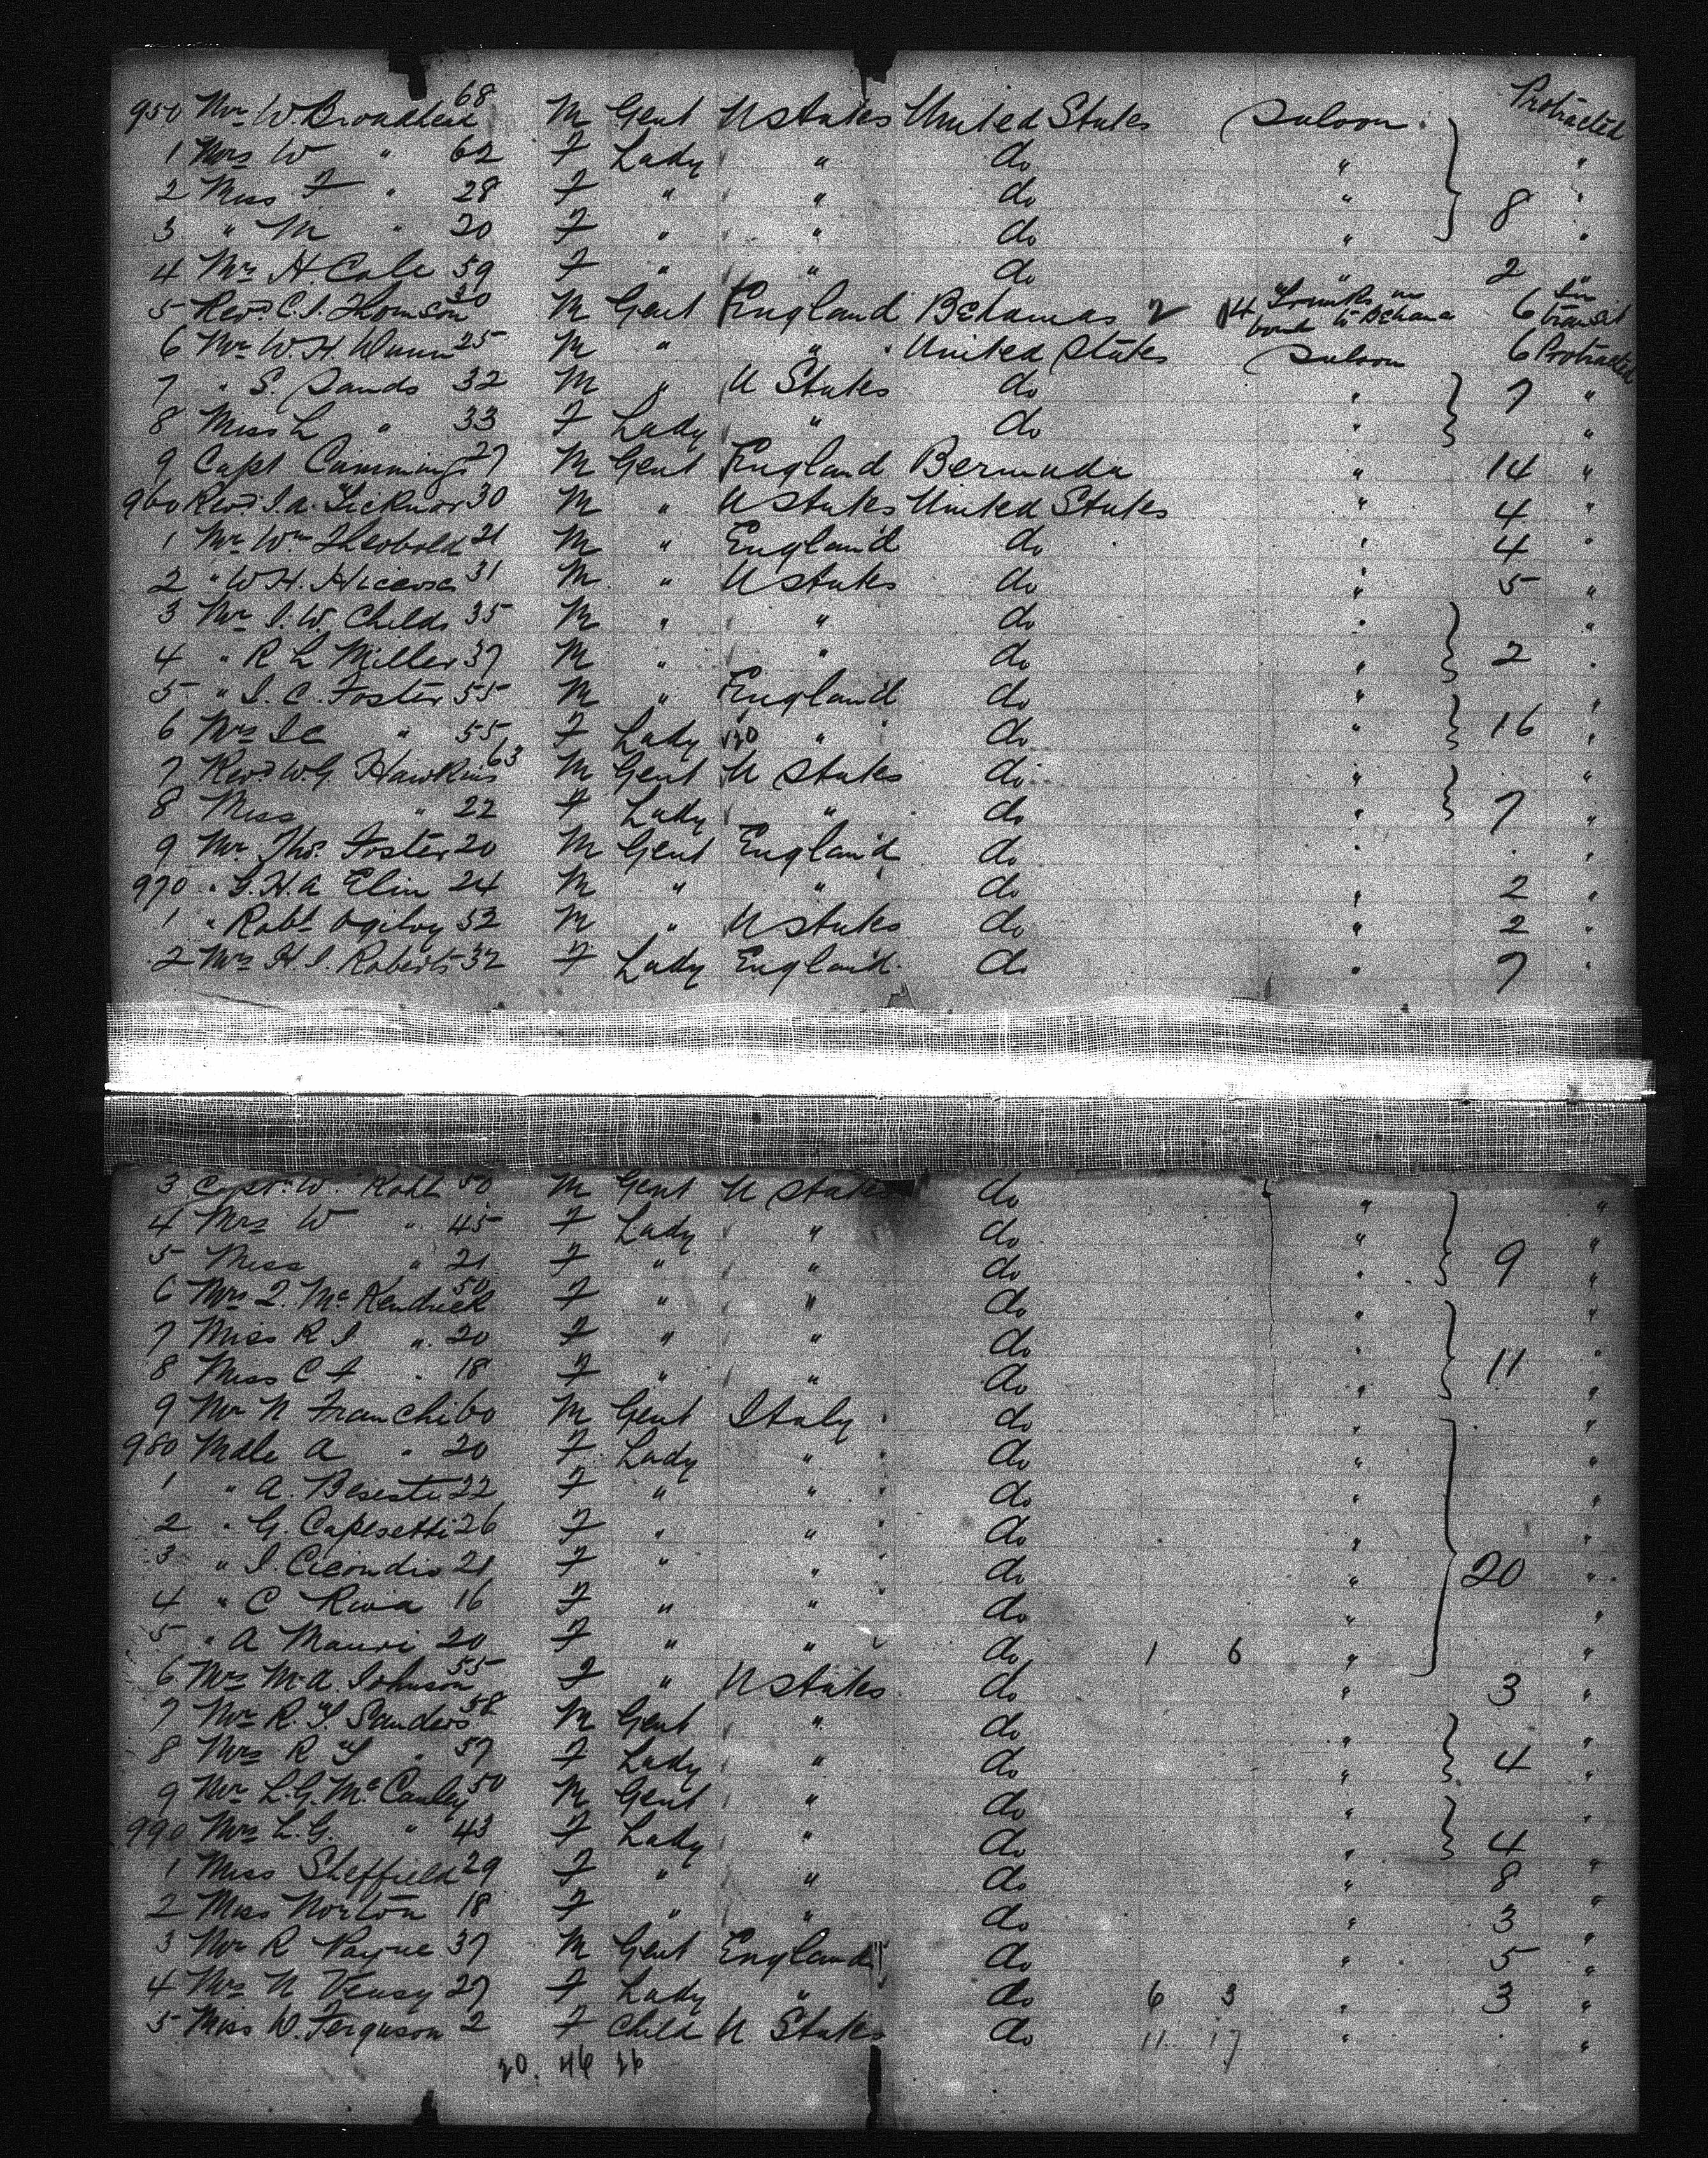 950 Mr W. Broadhead 68 M Gent U States United States Saloon Protracted
1 Mrs W " 62 F Lady " do " "
2 Miss F " 28 F " " do " 8 "
3 " M " 20 F " " do " "
4 Mrs H. Cole 59 F " " do " 2 "
5 Revd C. I. Thomson 30 M Gent England Bahamas 2 14 Trunks in bond to Bahama 6 In transit
6 Mr W. H. Dunn 25 M " " United States Saloon 6 Protracted
7 " S. Sands 32 M " U States do " 7 "
8 Miss L " 33 F Lady " do " "
9 Capt Cummings 27 M Gent England Bermuda " 14 "
960 Revd I. A. Ticknor 30 M " U States United States " 4 "
1 Mr Wm Theobold 21 M " England do " 4 "
2 " W H. 31 M " U States do " 5 "
3 Mr I. W. Childs 35 M " " do " "
4 " R L Miller 37 M " " do " 2 "
5 " I. C. Foster 55 M " England do " "
6 Mrs I C " 55 F Lady " do " 16 "
7 Revd W. G. Hawkins 63 M Gent U States do " "
8 Miss " 22 F Lady " do " 7 "
9 Mr Thos. Foster 20 M Gent England do " "
970 " G. H. A Elin 24 M " " do " 2 "
1 " Robt Ogilvy 52 M " U States do " 2 "
2 Mrs H. I. Roberts 32 F Lady England do " 7 "
3 Capt. W. Robb 50 M Gent U States do " "
4 Mrs W " 45 F Lady " do " "
5 Miss " 21 F " " do " 9 "
6 Mrs I. McKendrick 50 F " " do " "
7 Miss R I " 20 F " " do " "
8 Miss C I " 18 F " " do " 11 "
9 Mr N Franchi 60 M Gent Italy do " "
980 Mdle A " 20 F Lady " do " "
1 " A. Besesti 22 F " " do " "
2 " G. Capesetti 26 F " " do " "
3 " I. Cicondio 21 F " " do " 20 "
4 " C Riva 16 F " " do " "
5 " A Mauri 20 F " " do 1 6 " "
6 Mrs M. A. Johnson 55 F " U States do " 3 "
7 Mr R. T. Sanders 58 M Gent " do " "
8 Mrs R T " 57 F Lady " do " 4 "
9 Mr L. G. McCauley 50 M Gent " do " "
990 Mrs L. G. " 43 F Lady " do " 4 "
1 Miss Sheffield 29 F " " do " 8 "
2 Miss Norton 18 F " " do " 3 "
3 Mr R Payne 37 M Gent England do " 5 "
4 Mrs N Veasy 27 F Lady " do 6 3 " 3 "
5 Miss W. Ferguson 2 F Child U. States do 11 17 " "
20. 46 26